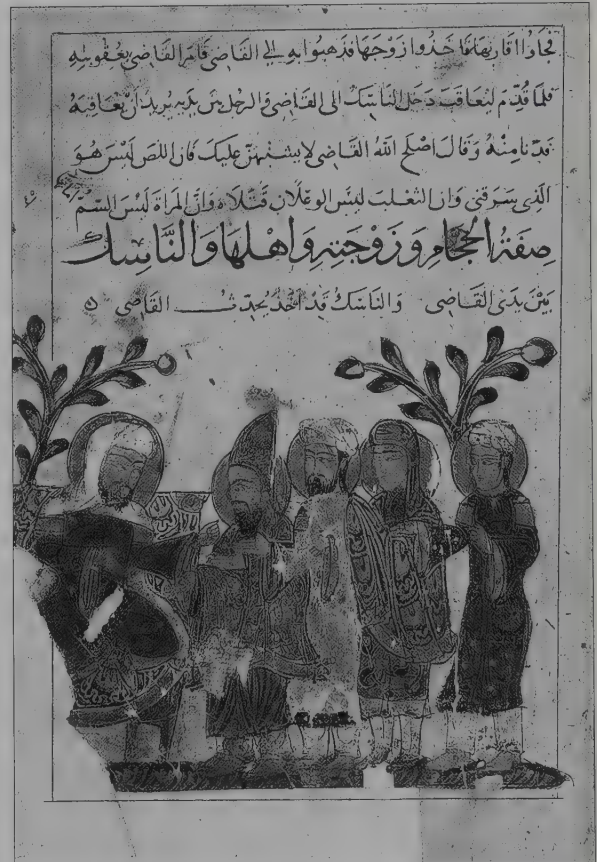 فجاوا اقاربها فاخذوا زوجها فذهبوا به الي القاضي فامر القاضي بعقوبته
فلما قدم ليعاقب دخل الناسك الي القاضي والرجل بين يديه يريد ان يعاقبه
فدنا منه وقال اصلح الله القاضي لا يشتبهن عليك فان اللص ليس هو
الذي سرقني وان الثعلب ليس الوعلان قتلاه وان المراة ليس السم
صفة الحجام وزوجته واهلها والناسك
بين يدي القاضي والناسك قد اخذ يحدث القاضي